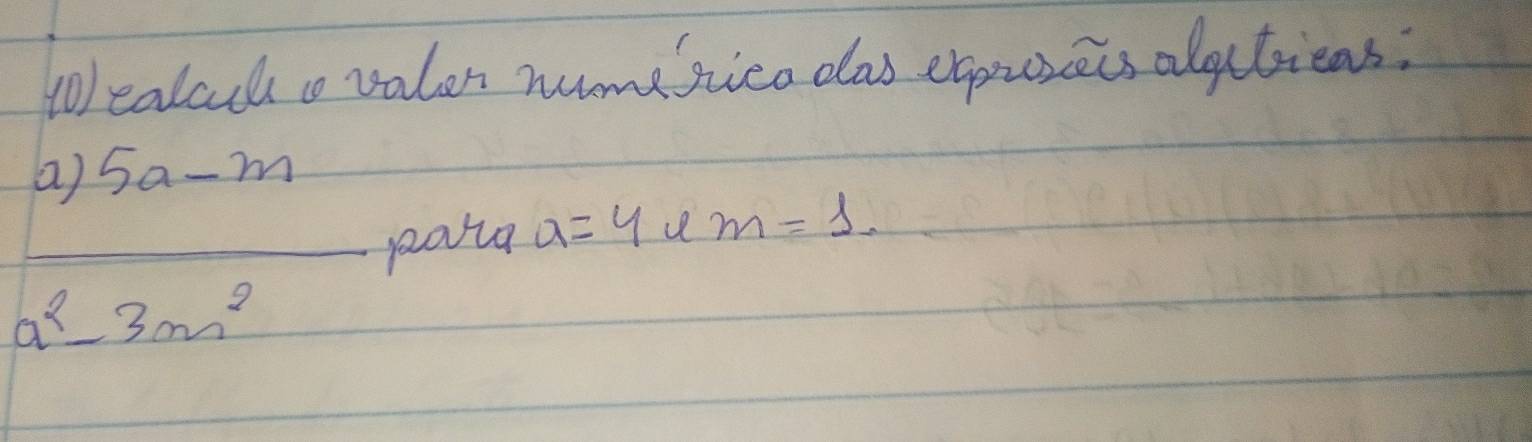 10) calcule o valor numérico das expressões algébricas:
a) 5a - m
para a = 4 e m = 1.
a² - 3m²